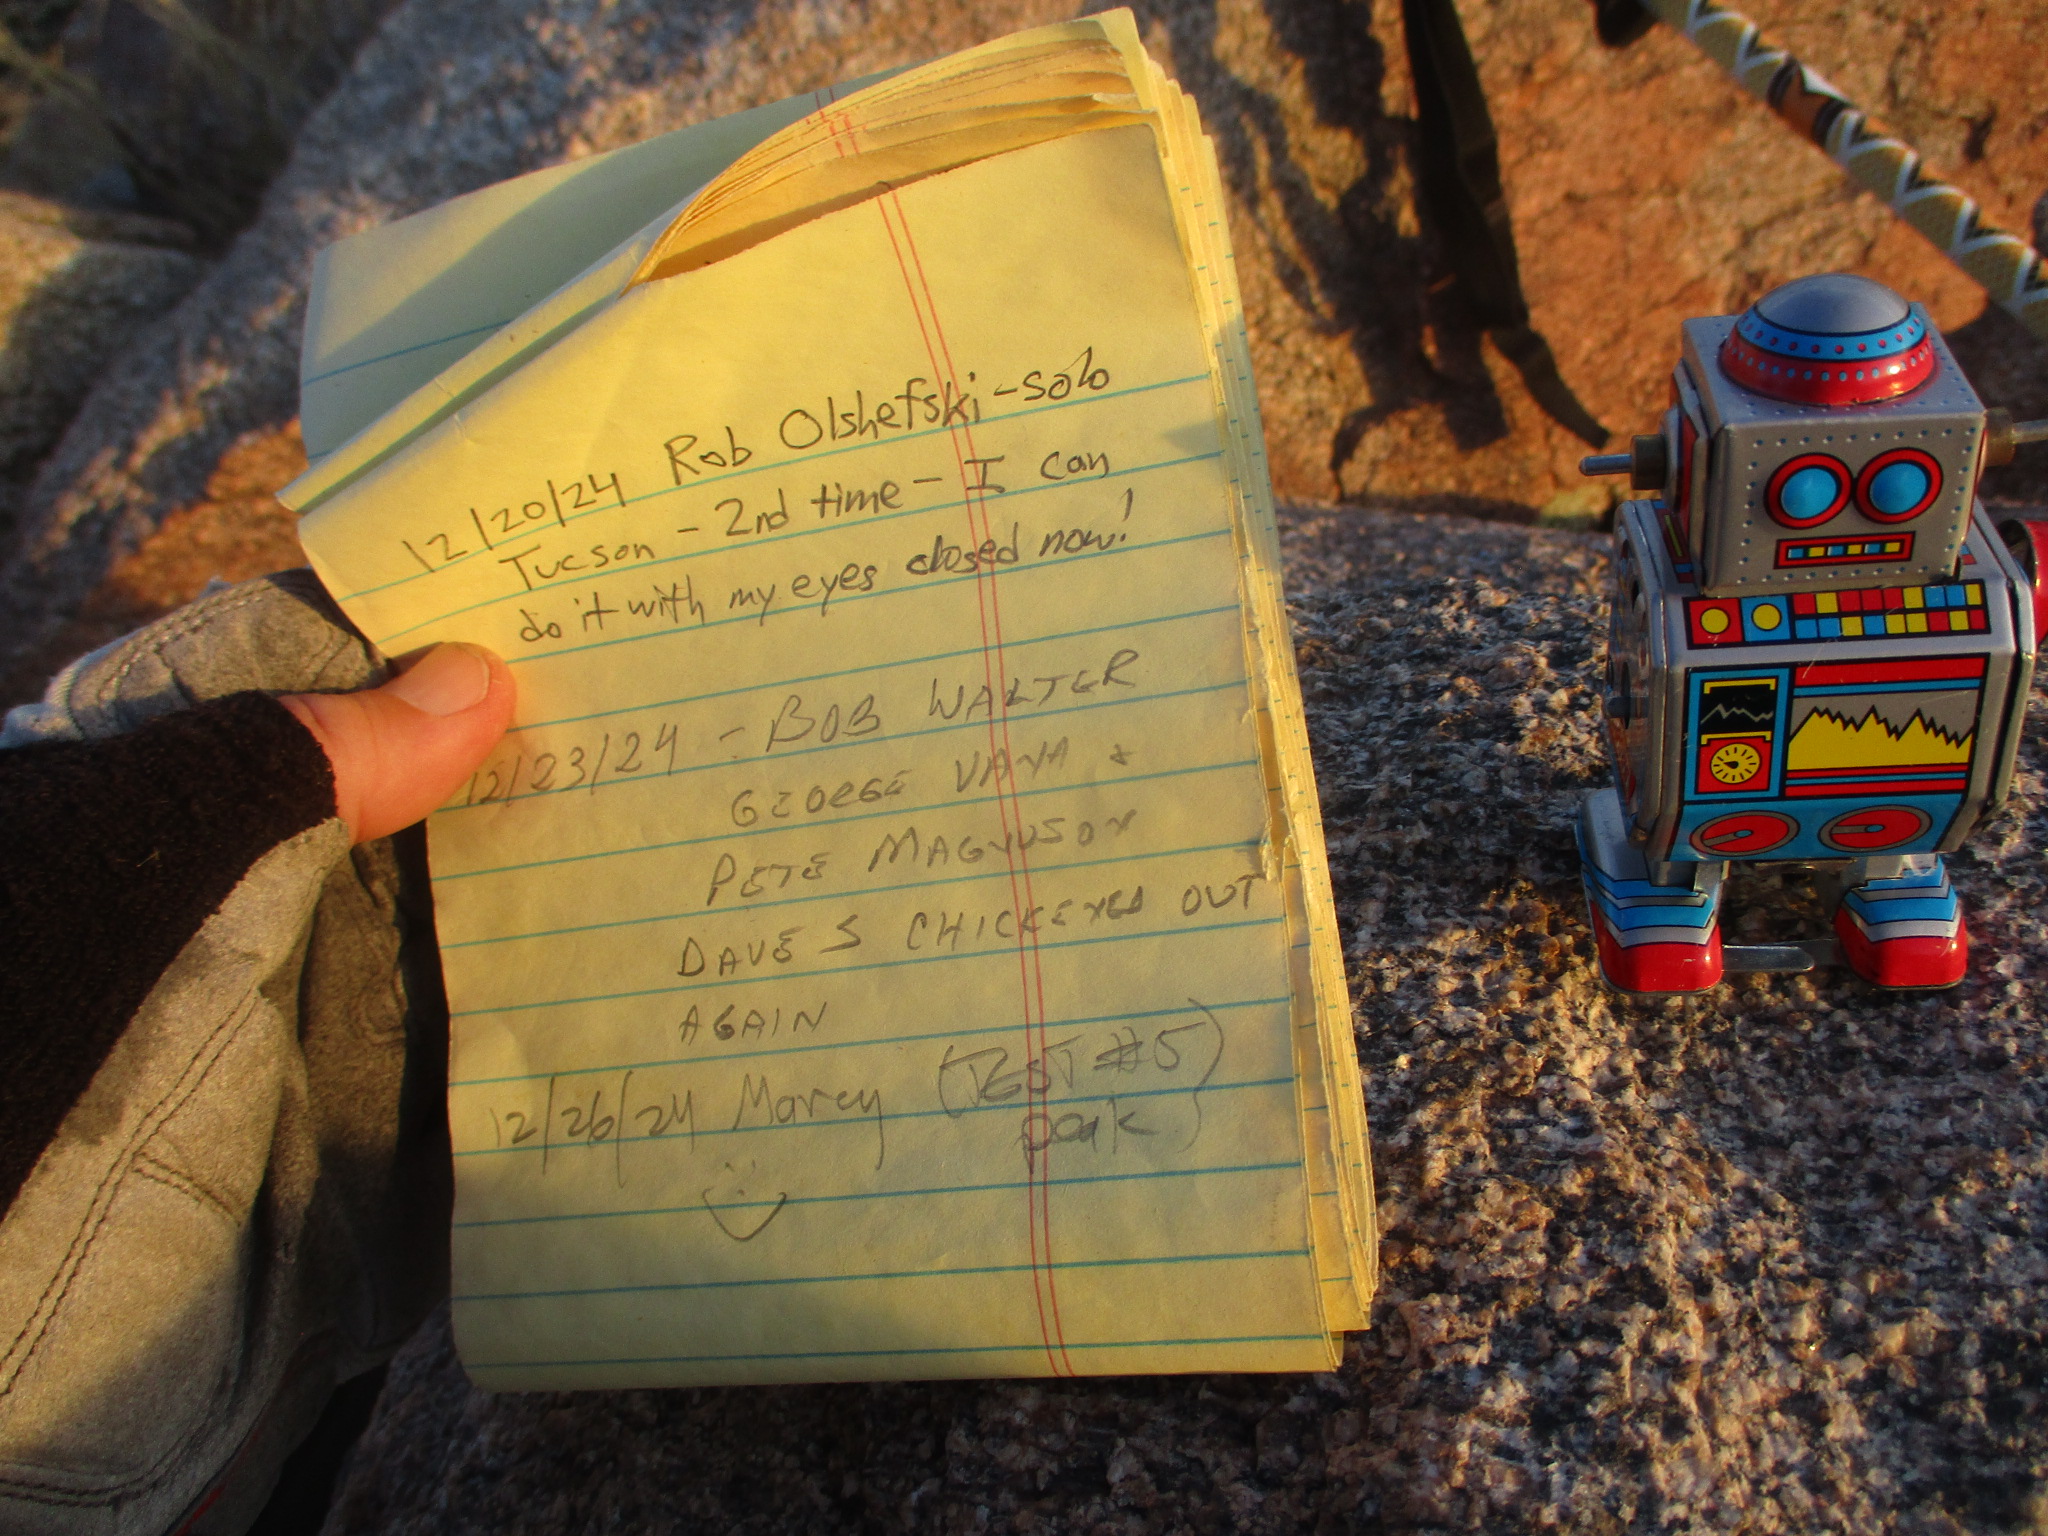 12/20/24 Rob Olshefski - solo
Tucson - 2nd time - I can
do it with my eyes closed now!
12/23/24 - BOB WALTER
GEORGE VAYA &
PETE MAGNUSON
DAVE S CHICKENED OUT
AGAIN
12/26/24 Marcy (TEST #5
peak)